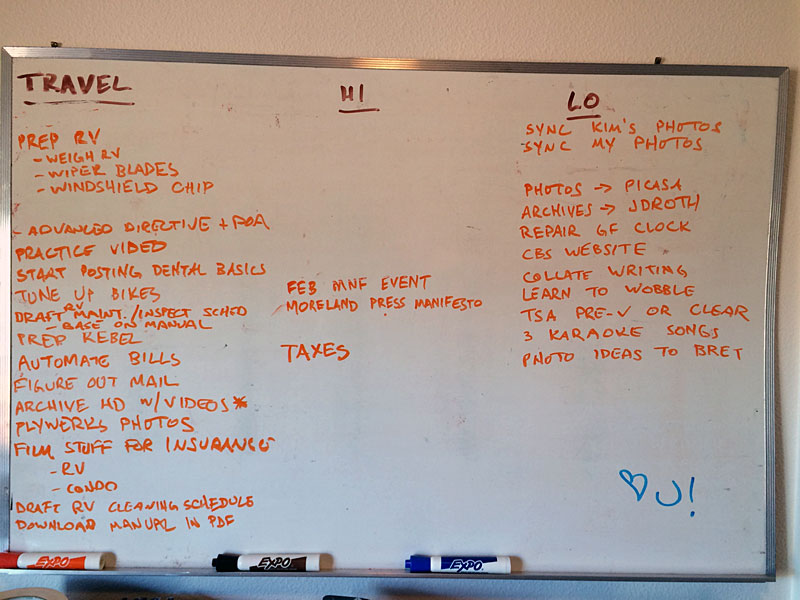 TRAVEL
PREP RV
- WEIGH RV
- WIPER BLADES
- WINDSHIELD CHIP
- ADVANCED DIRECTIVE + POA
PRACTICE VIDEO
START POSTING DENTAL BASICS
TUNE UP BIKES
DRAFT RV MAINT./INSPECT SCHED
- BASE ON MANUAL
PREP KEBEL
AUTOMATE BILLS
FIGURE OUT MAIL
ARCHIVE HD W/VIDEOS*
PLYWERKS PHOTOS
FILM STUFF FOR INSURANCE
- RV
- CONDO
DRAFT RV CLEANING SCHEDULE
DOWNLOAD MANUAL IN PDF
HI
FEB MNF EVENT
MORELAND PRESS MANIFESTO
TAXES
LO
SYNC KIM'S PHOTOS
SYNC MY PHOTOS
PHOTOS → PICASA
ARCHIVES → JDROTH
REPAIR GF CLOCK
CBS WEBSITE
COLLATE WRITING
LEARN TO WOBBLE
TSA PRE-V OR CLEAR
3 KARAOKE SONGS
PHOTO IDEAS TO BRET
♡ U!
EXPO
EXPO
EXPO